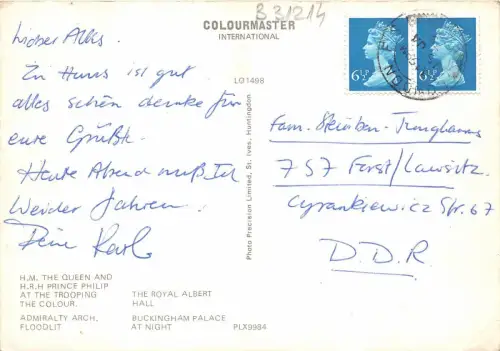 COLOURMASTER
INTERNATIONAL
B 31214
LO1498
6½P
6½P
Lieber Alks.
Zu Haus ist gut
alles schön danke für
eure Grüße.
Heute Abend muß Ich
weider fahren.
Dein Karl
Photo Precision Limited, St. Ives, Huntingdon
Fam.
757 Forst/Lausitz
Cyrankiewicz Str. 67
D.D.R
H.M. THE QUEEN AND
H.R.H PRINCE PHILIP
AT THE TROOPING
THE COLOUR.
THE ROYAL ALBERT
HALL
ADMIRALTY ARCH,
FLOODLIT
BUCKINGHAM PALACE
AT NIGHT
PLX9984